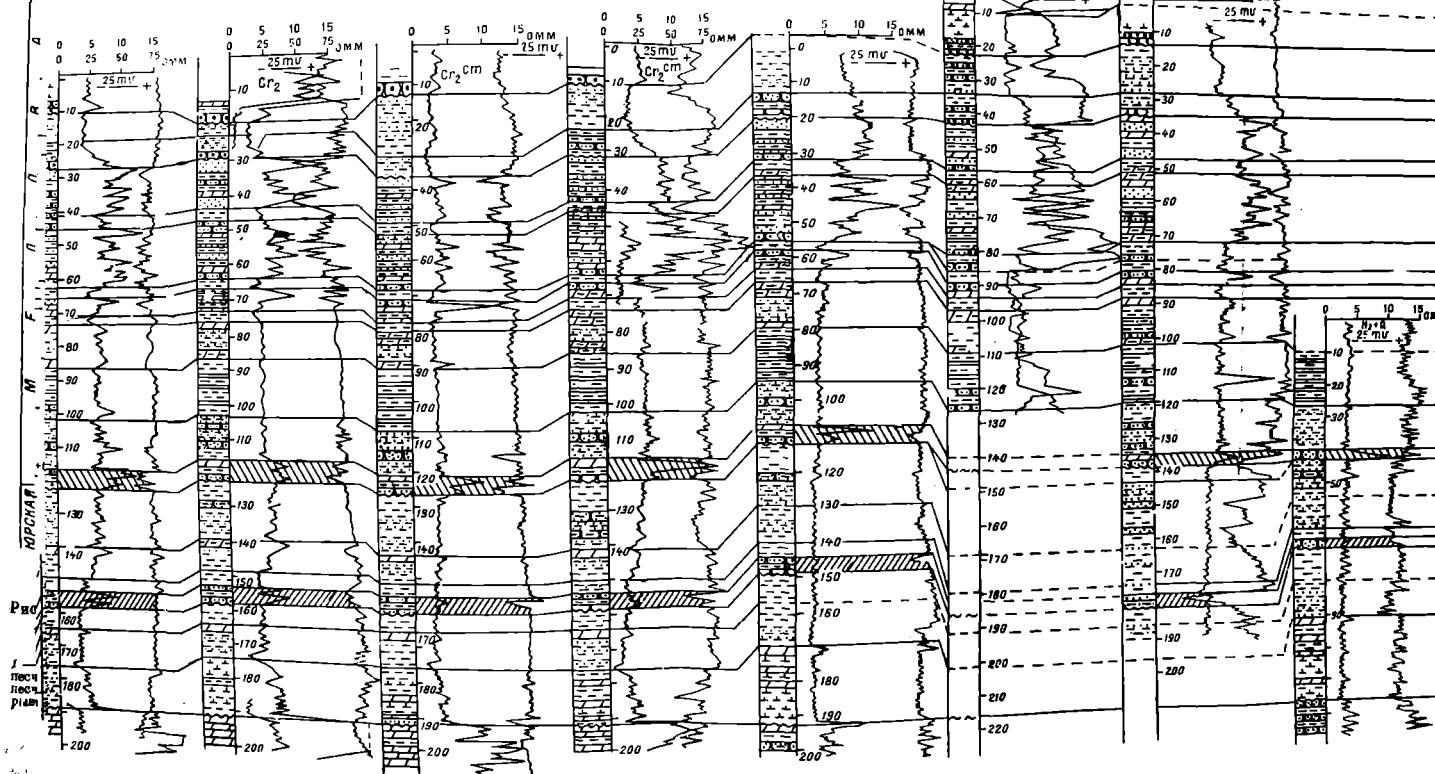 0 5 10 15
0 25 50 75 ОММ
25 mV +
10
20
30
40
50
60
70
80
90
100
110
130
140
160
170
180
200
0 5 10 15
0 25 50 75 ОММ
25 mV +
Cr₂
10
30
40
50
60
70
80
90
100
110
130
140
150
160
170
180
200
0 5 10 15
25 mV +
Cr₂ cm
20
40
50
60
80
90
100
110
120
140
170
180
190
200
0 5 10 15
0 25 50 75 ОММ
25 mV +
Cr₂ cm
0
10
20
30
40
60
80
90
100
110
130
140
160
170
180
200
0 5 10 15
25 mV +
0
10
20
30
50
60
80
90
100
120
130
140
150
160
180
190
200
10
20
30
40
50
60
70
80
90
100
110
120
130
140
150
160
170
180
190
200
210
220
25 mV +
10
20
30
40
50
60
70
80
90
100
110
120
130
140
150
160
170
190
200
0 5 10 15
25 mV +
10
20
30
50
90
М
ЮРСКАЯ
Рис
1
песч
песч